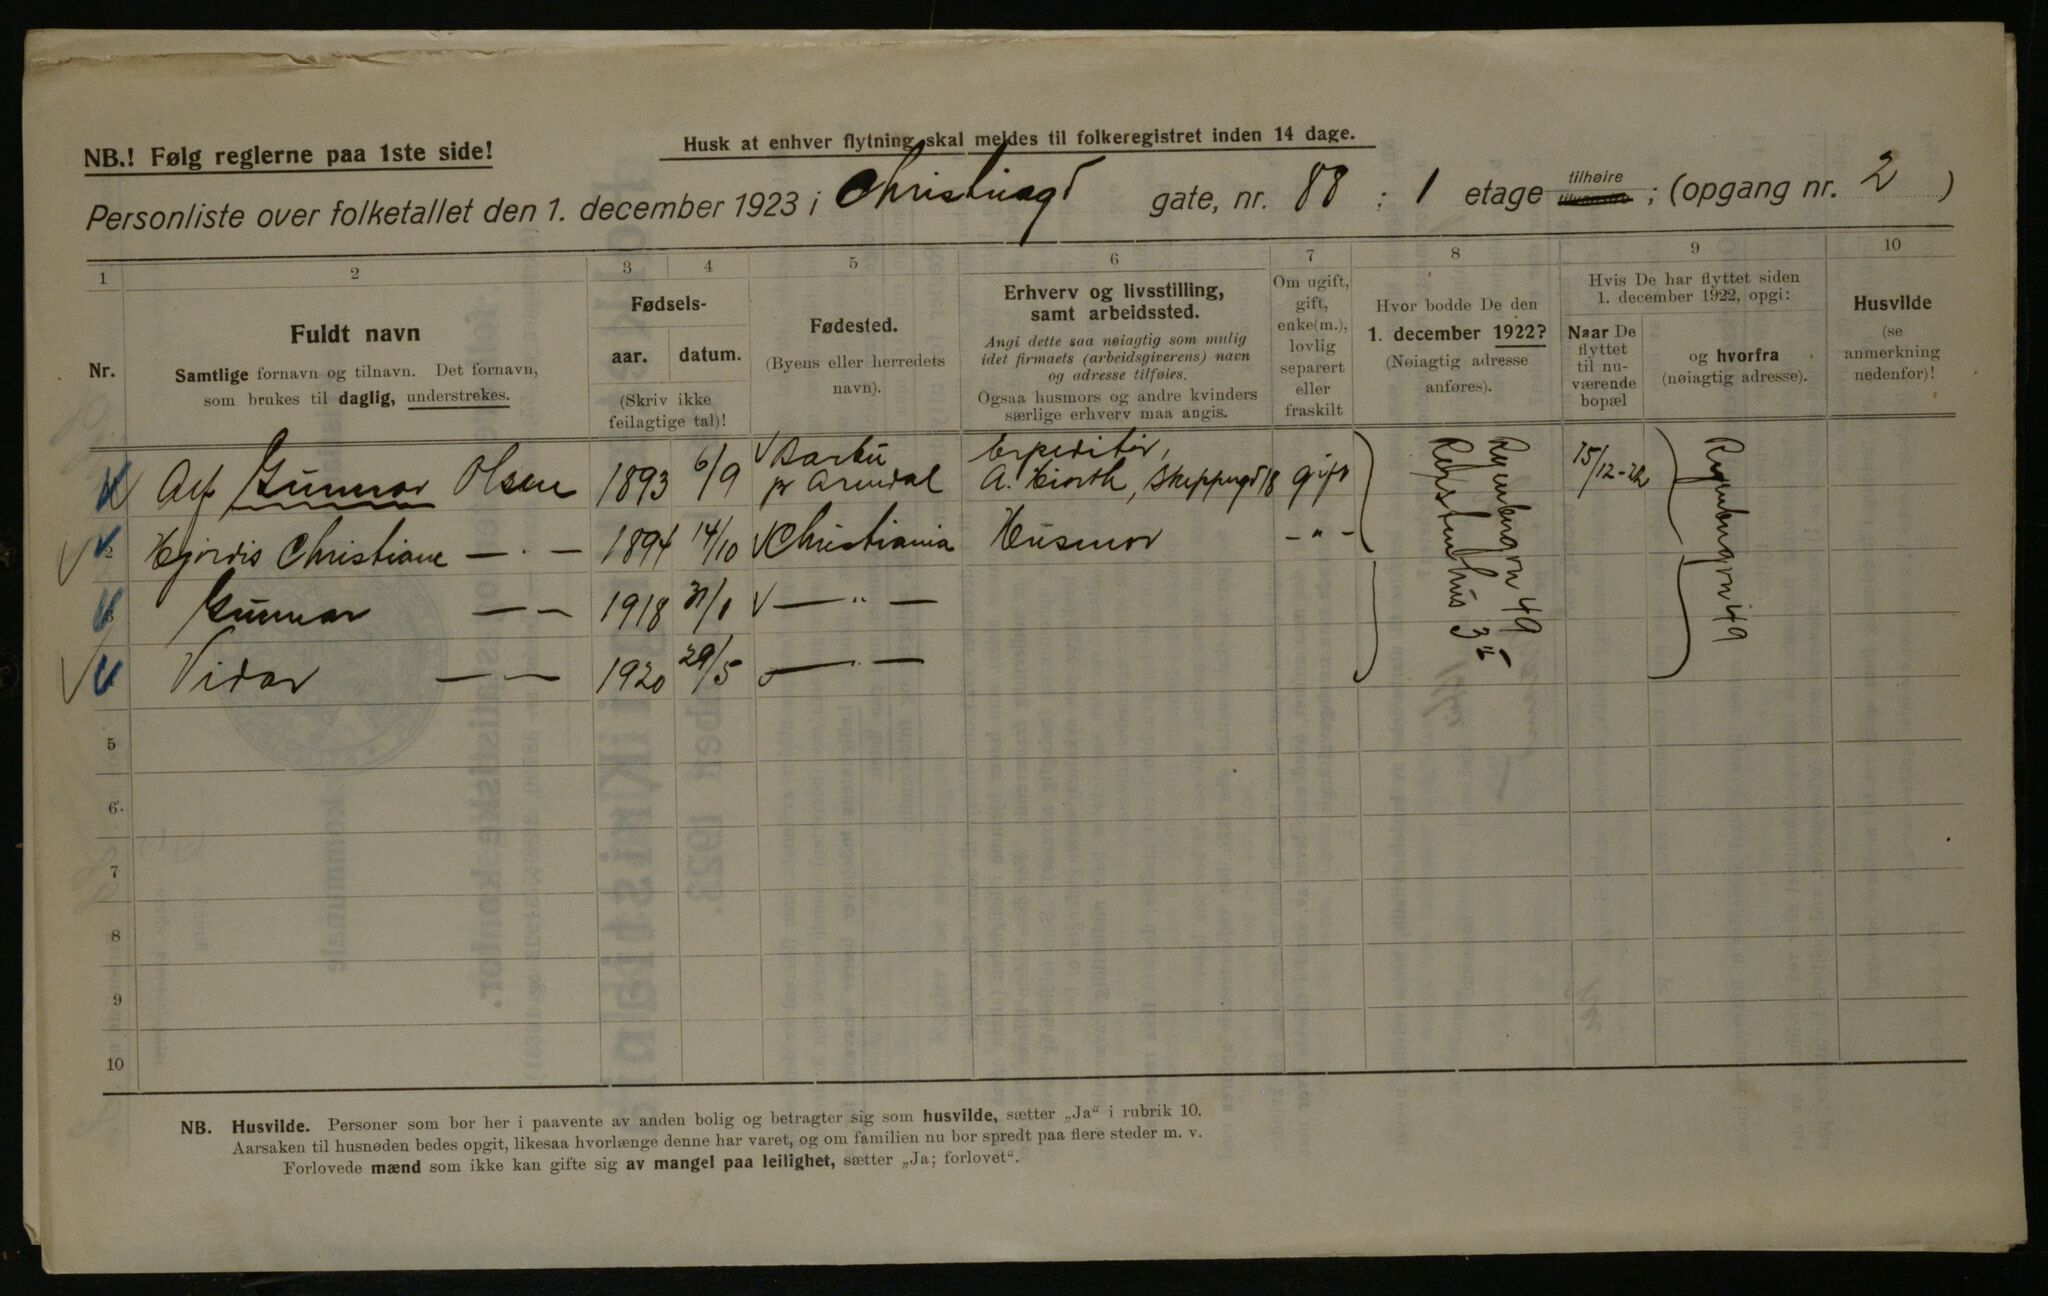 Husk at enhver flytning skal meldes til folkeregistret inden 14 dage.
NB.! Følg reglerne paa 1ste side!
Personliste over folketallet den 1. december 1923 i Christiesgt gate, nr. 88 ; 1 etage tilhøire ; (opgang nr. 2 )
1 2 3 4 5 6 7 8 9 10
Nr.
Fuldt navn
Samtlige fornavn og tilnavn. Det fornavn,
som brukes til daglig, understrekes.
Fødsels-
aar. datum.
(Skriv ikke
feilagtige tal)!
Fødested.
(Byens eller herredets
navn).
Erhverv og livsstilling,
samt arbeidssted.
Angi dette saa nøiagtig som mulig
idet firmaets (arbeidsgiverens) navn
og adresse tilføies.
Ogsaa husmors og andre kvinders
særlige erhverv maa angis.
Om ugift,
gift,
enke(m.),
lovlig
separert
eller
fraskilt
Hvor bodde De den
1. december 1922?
(Nøiagtig adresse
anføres).
Hvis De har flyttet siden
1. december 1922, opgi:
Naar De
flyttet
til nu-
værende
bopæl
og hvorfra
(nøiagtig adresse).
Husvilde
(se
anmerkning
nedenfor)!
Alf Gunnar Olsen 1893 6/9 Barbu
pr Arendal Expeditør,
A. Hiorth, Skippergt 18 gift
15/12-22
2 Hjørdis Christiane — . — 1894 14/10 Christiania Husmor - " -
3 Gunnar — — 1918 31/1 — " —
Vidar — — 1920 29/5 — " —
Ryenbergvn 49
Ryenbergvn 49
5
6
7
8
9
10
NB. Husvilde. Personer som bor her i paavente av anden bolig og betragter sig som husvilde, sætter „Ja“ i rubrik 10.
Aarsaken til husnøden bedes opgit, likesaa hvorlænge denne har varet, og om familien nu bor spredt paa flere steder m. v.
Forlovede mænd som ikke kan gifte sig av mangel paa leilighet, sætter „Ja; forlovet“.